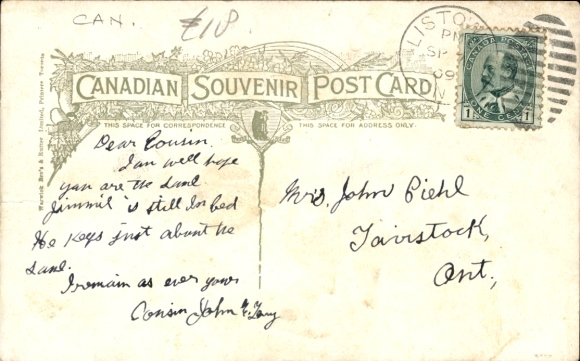 CAN.
£18
LISTOW
PM
SP
09
CANADA POSTAGE
1 ONE CENT 1
CANADIAN SOUVENIR POST CARD
THIS SPACE FOR CORRESPONDENCE
THIS SPACE FOR ADDRESS ONLY
Warwick Bro's & Rutter Limited, Printers Toronto
Dear Cousin.
I am well hope
you are the same
Jimmie is still In bed
He Keeps just about the
same.
I remain as ever yours
Cousin John
Mrs. John Piehl
Tavistock,
Ont.,